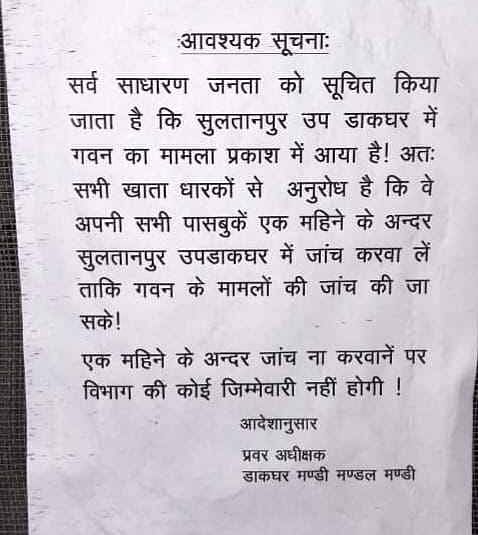 :आवश्यक सूचना:
सर्व साधारण जनता को सूचित किया
जाता है कि सुलतानपुर उप डाकघर में
गवन का मामला प्रकाश में आया है! अतः
सभी खाता धारकों से अनुरोध है कि वे
अपनी सभी पासबुकें एक महिने के अन्दर
सुलतानपुर उपडाकघर में जांच करवा लें
ताकि गवन के मामलों की जांच की जा
सके!
एक महिने के अन्दर जांच ना करवानें पर
विभाग की कोई जिम्मेवारी नहीं होगी !
आदेशानुसार
प्रवर अधीक्षक
डाकघर मण्डी मण्डल मण्डी